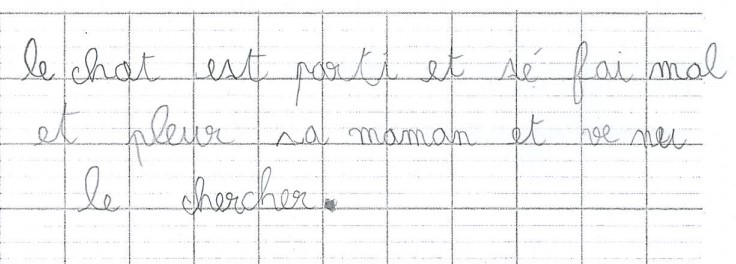 le chat est parti et sé fai mal
et pleur sa maman et ve nu
le chercher.